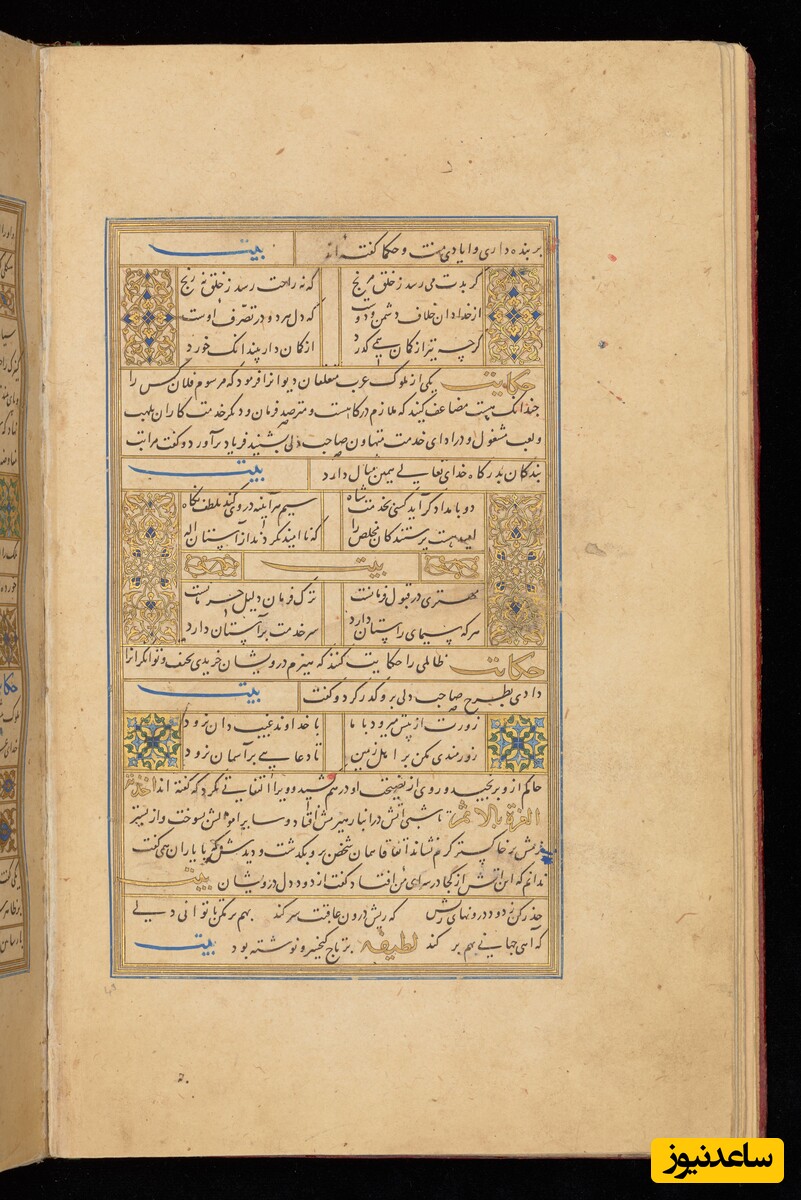 بر بنده داری و ایادی منت و حکما گفته اند بیت
گر بدت می رسد ز خلق مرنج که نه راحت رسد ز خلق نه رنج
از خدا دان خلاف دشمن و دوست که دل هر دو در تصرف اوست
گرچه تیر از کمان همی گذرد از کمان دار بیند اهل خرد
حکایت یکی از ملوک عرب متعلقان دیوان را فرمود که مرسوم فلان کس را
چندانک هست مضاعف کنید که ملازم درگاهست و مترصد فرمان و دیگر خدمت کاران بلهو
و لعب مشغول و در ادای خدمت متهاون صاحب دلی بشنید فریاد برآورد و گفت مراتب
بندگان بدرگاه خدای تعالی همین مثال دارد بیت
دو بامداد گر آید کسی بخدمت شاه سیم هر آینه در وی کند بلطف نگاه
امید هست پرستندگان مخلص را که ناامید نگردند از آستان اله
بیت
مهتری در قبول فرمانست ترک فرمان دلیل حرمانست
هر که سیمای راستان دارد سر خدمت بر آستان دارد
حکایت ظالمی را حکایت کنند که هیزم درویشان خریدی بحیف و توانگرانرا
دادی بطرح صاحب دلی برو گذر کرد و گفت بیت
زورت ار پیش میرود با ما با خداوند غیب دان نرود
زورمندی مکن بر اهل زمین تا دعایی بر آسمان نرود
حاکم ازو برنجید و روی از نصیحت او درهم کشید و ویرا التفاتی نکرد که گفته اند اخذته
العزة بالاثم تا شبی آتش در انبار هیزمش افتاد و سایر اموالش بسوخت و از بستر
نرمش بر خاکستر گرم نشاند اتفاقا همان شخص برو بگذشت و دیدش که با یاران همی گفت
ندانم که این آتش از کجا در سرای من افتاد گفت از دود دل درویشان بیت
حذر کن ز دود درونهای ریش که ریش درون عاقبت سر کند بهم بر مکن تا توانی دلی
که آهی جهانی بهم بر کند لطیفه بر تاج کیخسرو نوشته بود بیت
ساعدنیوز